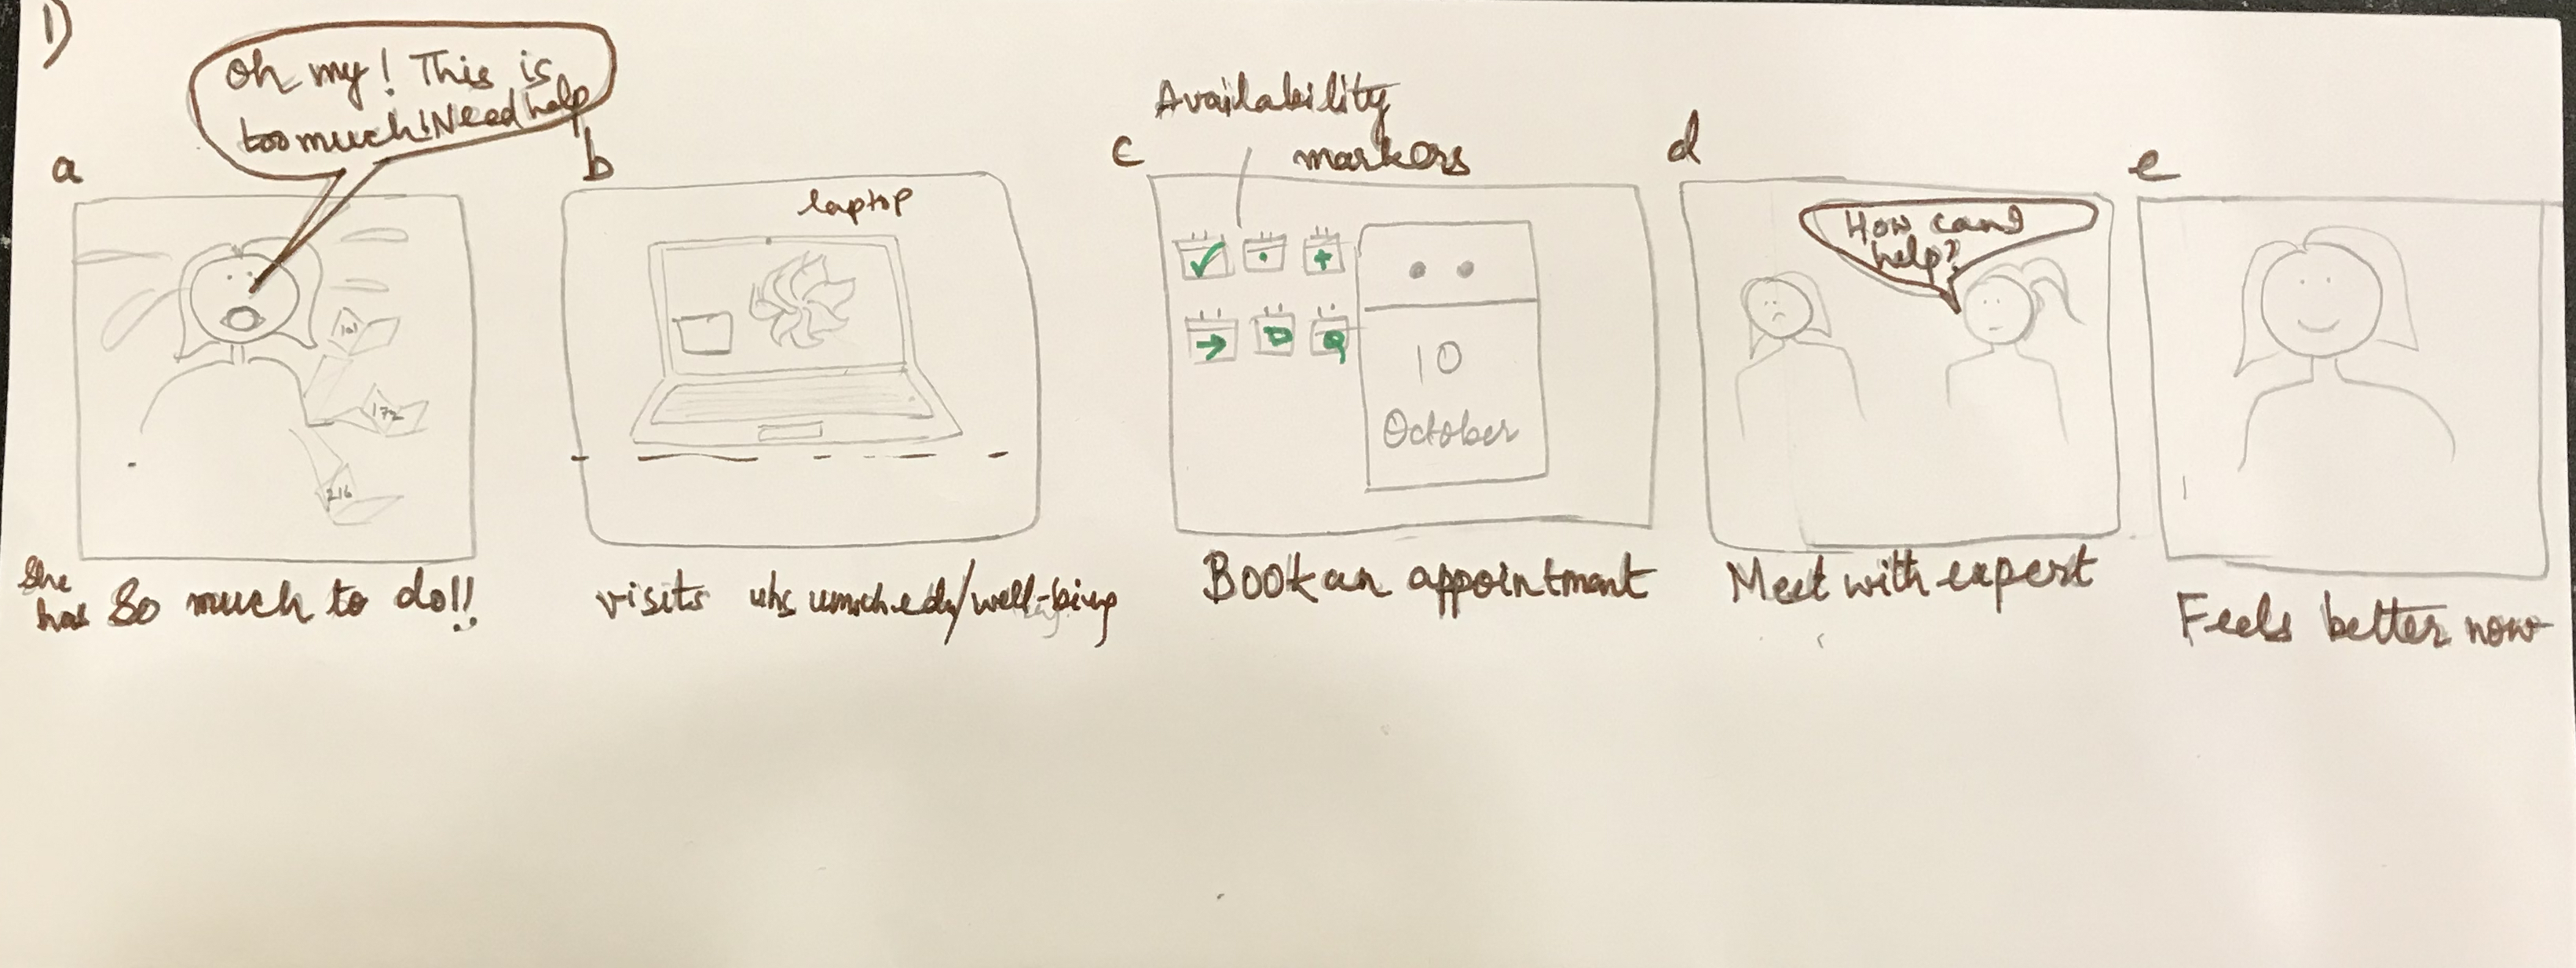 1)
Oh my! This is
too much! Need help
a
She
has So much to do!!
b
laptop
visits uhs umich.edu/well-being
Availability
markers
c
10
October
Book an appointment
d
How can I
help?
Meet with expert
e
Feels better now
101
172
216